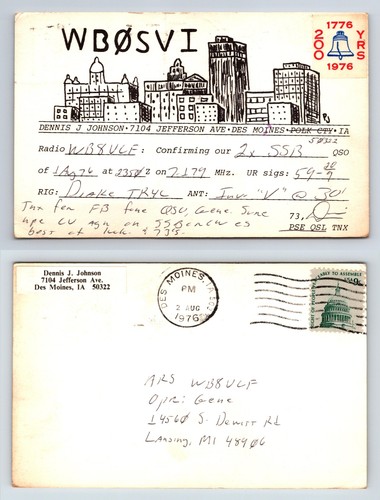 WBØSVI
1776
200 YRS
1976
DENNIS J JOHNSON·7104 JEFFERSON AVE·DES MOINES·POLK CTY·IA
50322
Radio WB8VLF: Confirming our 2x SSB QSO
of 1 Aug 76 at 2350 Z on 7.179 MHz. UR sigs: 59-
RIG: Drake TR4C ANT: Inv. "V" @ 30'
Tnx fer FB fone QSO, Gene. Sure
hpe CU agn on SSB or CW es
best of luck & 73's. 73,
PSE QSL TNX
Dennis J. Johnson
7104 Jefferson Ave.
Des Moines, IA 50322
DES MOINES, IA
PM
2 AUG
1976
MRS WB8VLF
Opr: Gene
14560 S. Dewitt Rd
Lansing, MI 48906